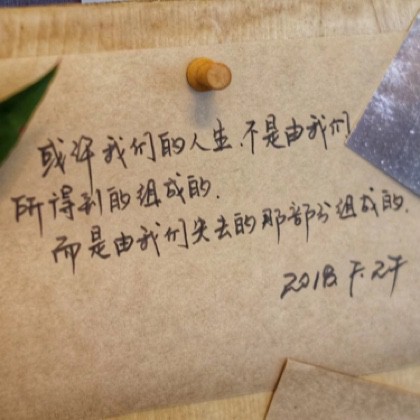 或许我们的人生.不是由我们
所得到的组成的.
而是由我们失去的那部分组成的.
2018